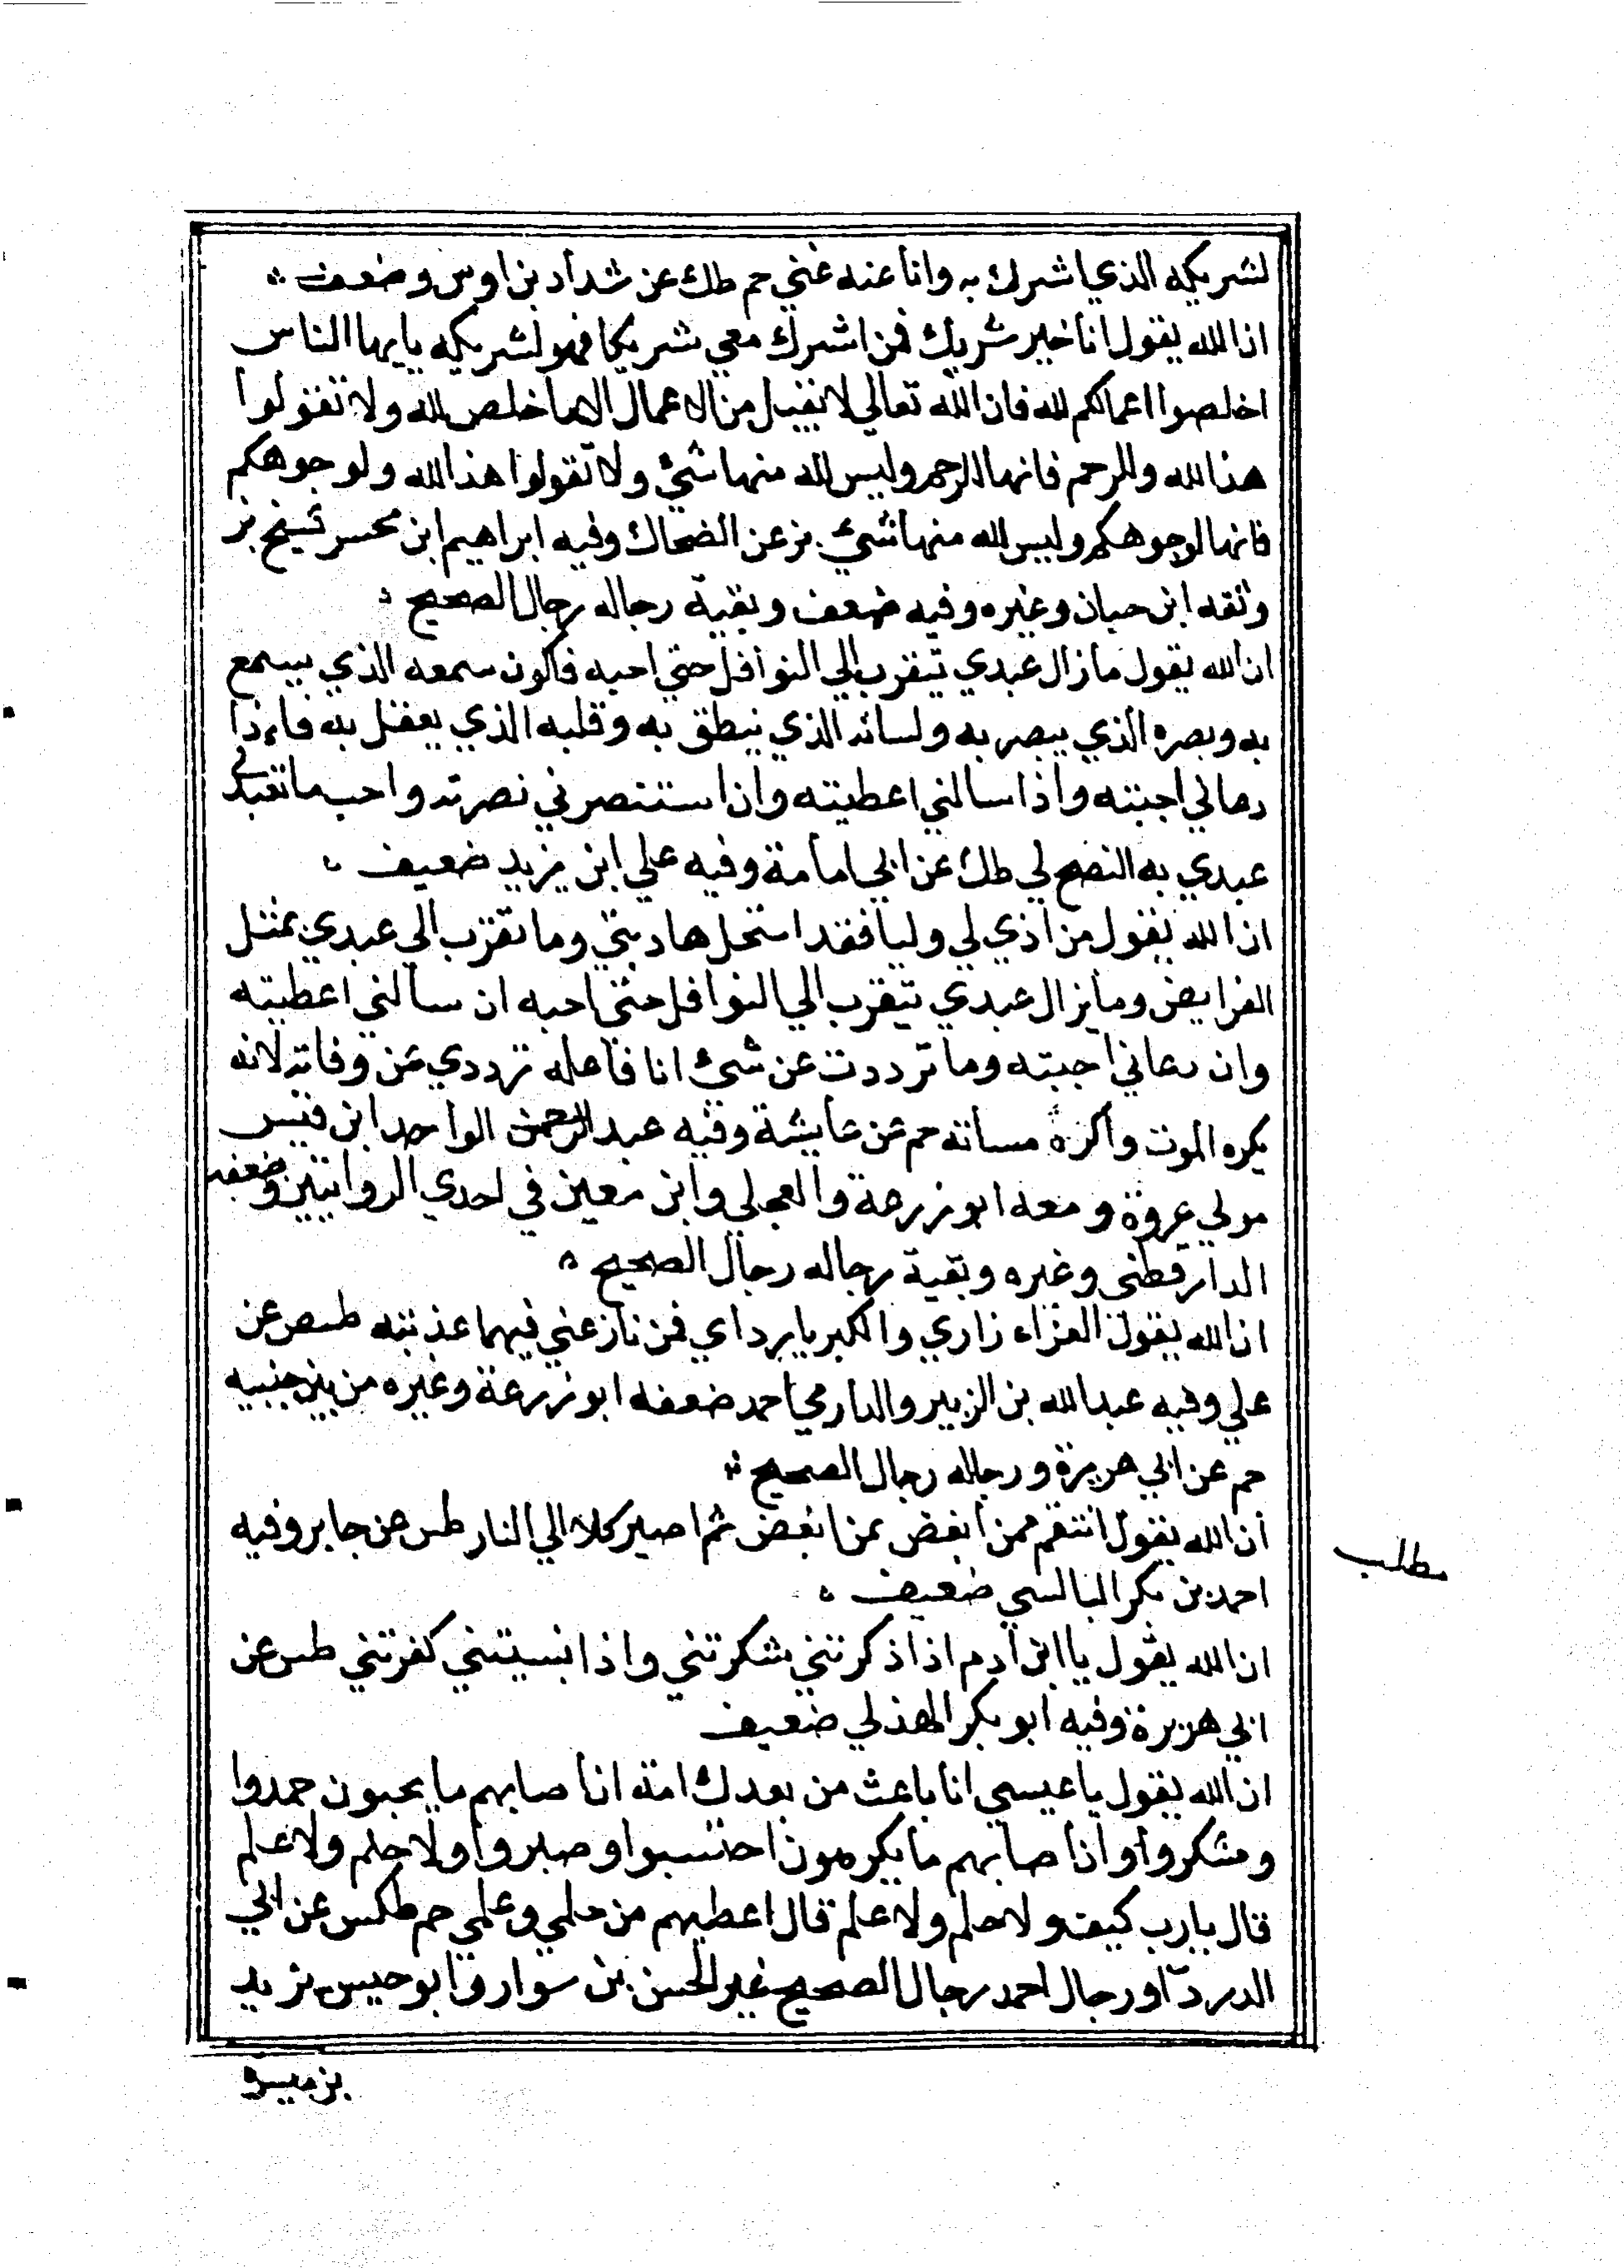 لشريكه الذي اشرك به وانا عنه غني حم طك عن شداد بن اوس وضعف
ان الله يقول انا خير شريك فمن اشرك معي شريكا فهو لشريكه يايها الناس
اخلصوا اعمالكم لله فان الله تعالي لا يقبل من الاعمال الا ما خلص لله ولا تقولوا
هذا لله وللرحم فانها للرحم وليس لله منها شيء ولا تقولوا هذا لله ولوجوهكم
فانها لوجوهكم وليس لله منها شيء بز عن الضحاك وفيه ابراهيم ابن محسر شيخ بز
وثقه ابن حبان وغيره وفيه ضعف وبقية رجاله رجال الصحيح
ان الله يقول ما زال عبدي يتقرب الي النوافل حتي احبه فاكون سمعه الذي يسمع
به وبصره الذي يبصر به ولسانه الذي ينطق به وقلبه الذي يعقل به فاءذا
دعاني اجبته واذا سالني اعطيته وان استنصرني نصرته واحب ما تعبدني
عبدي به النصح لي طك عن ابي امامة وفيه علي ابن يزيد ضعيف
ان الله يقول من اذي لي وليا فقد استحل محاربتي وما تقرب الي عبدي بمثل
الفرايض وما يزال عبدي يتقرب الي النوافل حتي احبه ان سالني اعطيته
وان دعاني اجبته وما ترددت عن شيء انا فاعله ترددي عن وفاته لانه
يكره الموت واكره مساته حم عن عايشة وفيه عبد الرحمن الواحد ابن قيس
مولي عروة ومعه ابو زرعة والعجلي وابن معين في احدي الروايتين وضعفه
الدارقطني وغيره وبقية رجاله رجال الصحيح
ان الله يقول العزاء زاري والكبريا رداي فمن نازعني فيهما عذبته طص عن
علي وفيه عبد الله بن الزبير والدارمي احمد ضعفه ابو زرعة وغيره من بين جنبيه
حم عن ابي هريرة ورجاله رجال الصحيح
ان الله يقول انتقم ممن ابغض بمن ابغض ثم اصير كلا الي النار طس عن جابر وفيه
احمد بن بكر البالسي ضعيف
مطلب
ان الله يقول يا ابن ادم اذا ذكرتني شكرتني واذا نسيتني كفرتني طس عن
ابي هريرة وفيه ابو بكر الهذلي ضعيف
ان الله يقول يا عيسي انا باعث من بعدك امة ان اصابهم ما يحبون حمدوا
وشكروا وان اصابهم ما يكرهون احتسبوا وصبروا ولا حلم ولا علم
قال يا رب كيف ولا حلم ولا علم قال اعطيهم من حلمي وعلمي حم طكس عن ابي
الدرداء ورجال احمد رجال الصحيح غير الحسن بن سوار وابو حيس يزيد
بن ميسرة